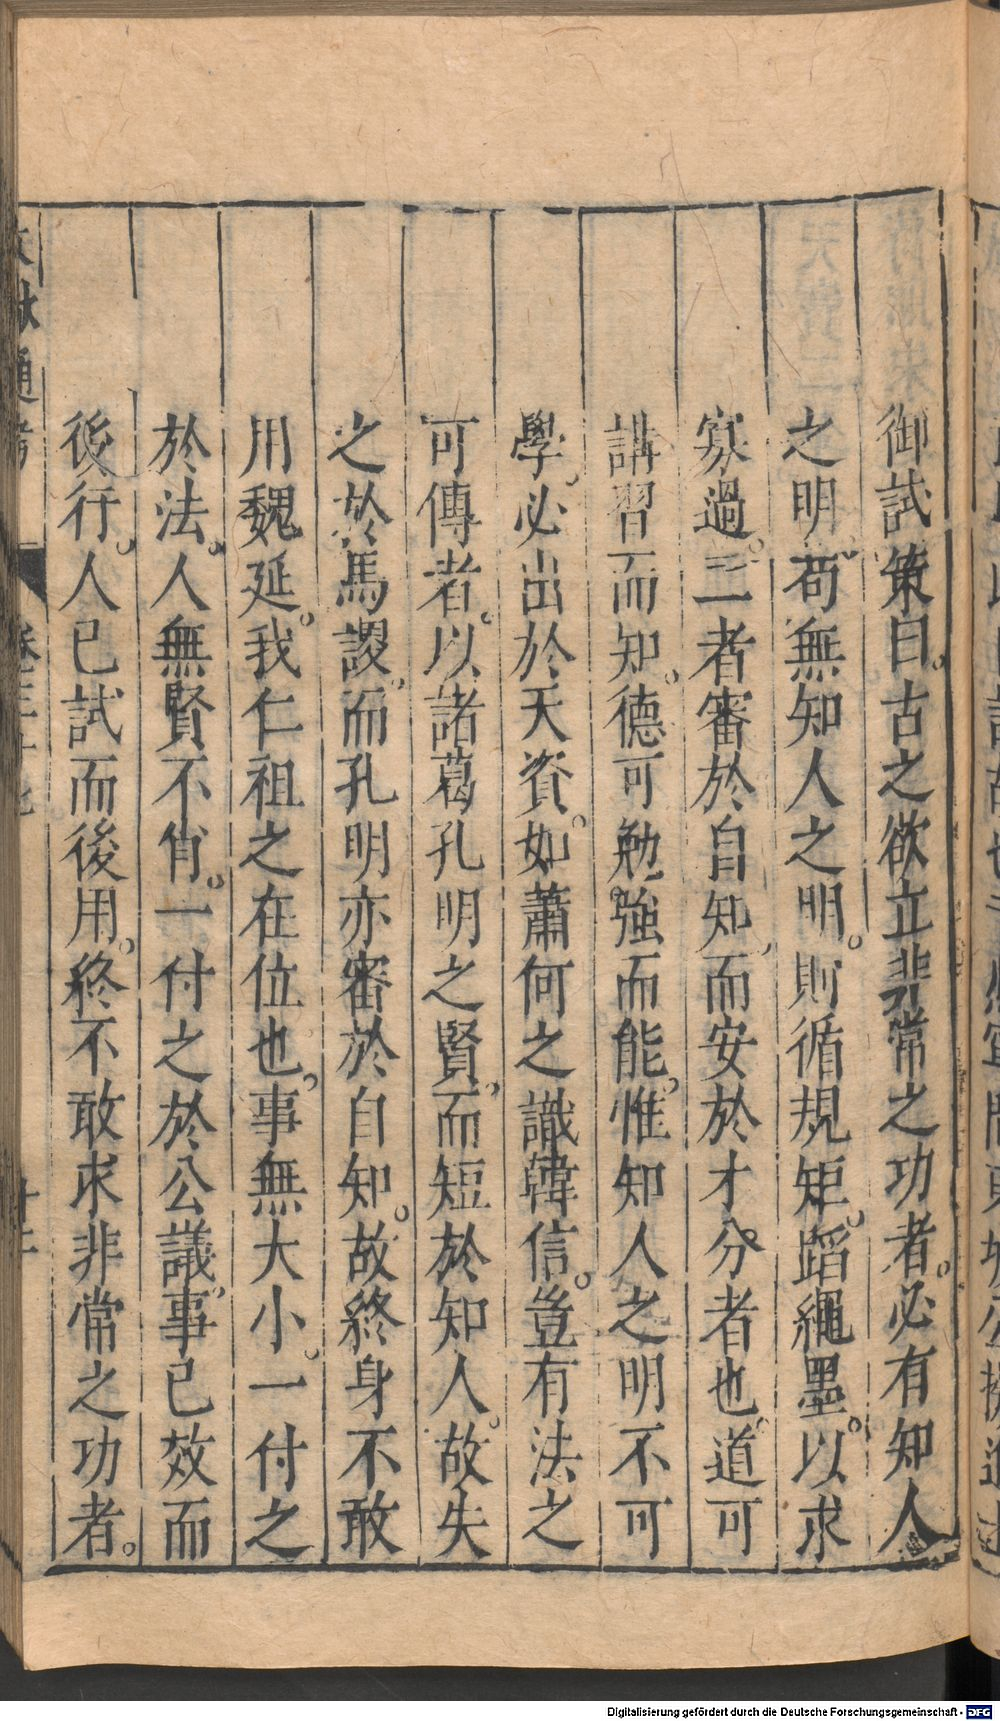 御試策曰。古之欲立非常之功者。必有知人
之明。苟無知人之明。則循規矩。蹈繩墨。以求
寡過。二者審於自知。而安於才分者也。道可
講習而知。德可勉強而能。惟知人之明不可
學。必出於天資。如蕭何之識韓信。豈有法之
可傳者。以諸葛孔明之賢。而短於知人。故失
之於馬謖。而孔明亦審於自知。故終身不敢
用魏延。我仁祖之在位也。事無大小。一付之
於法。人無賢不肖。一付之於公議。事已效而
後行。人已試而後用。終不敢求非常之功者。
文獻通考
Digitalisierung gefördert durch die Deutsche Forschungsgemeinschaft - DFG